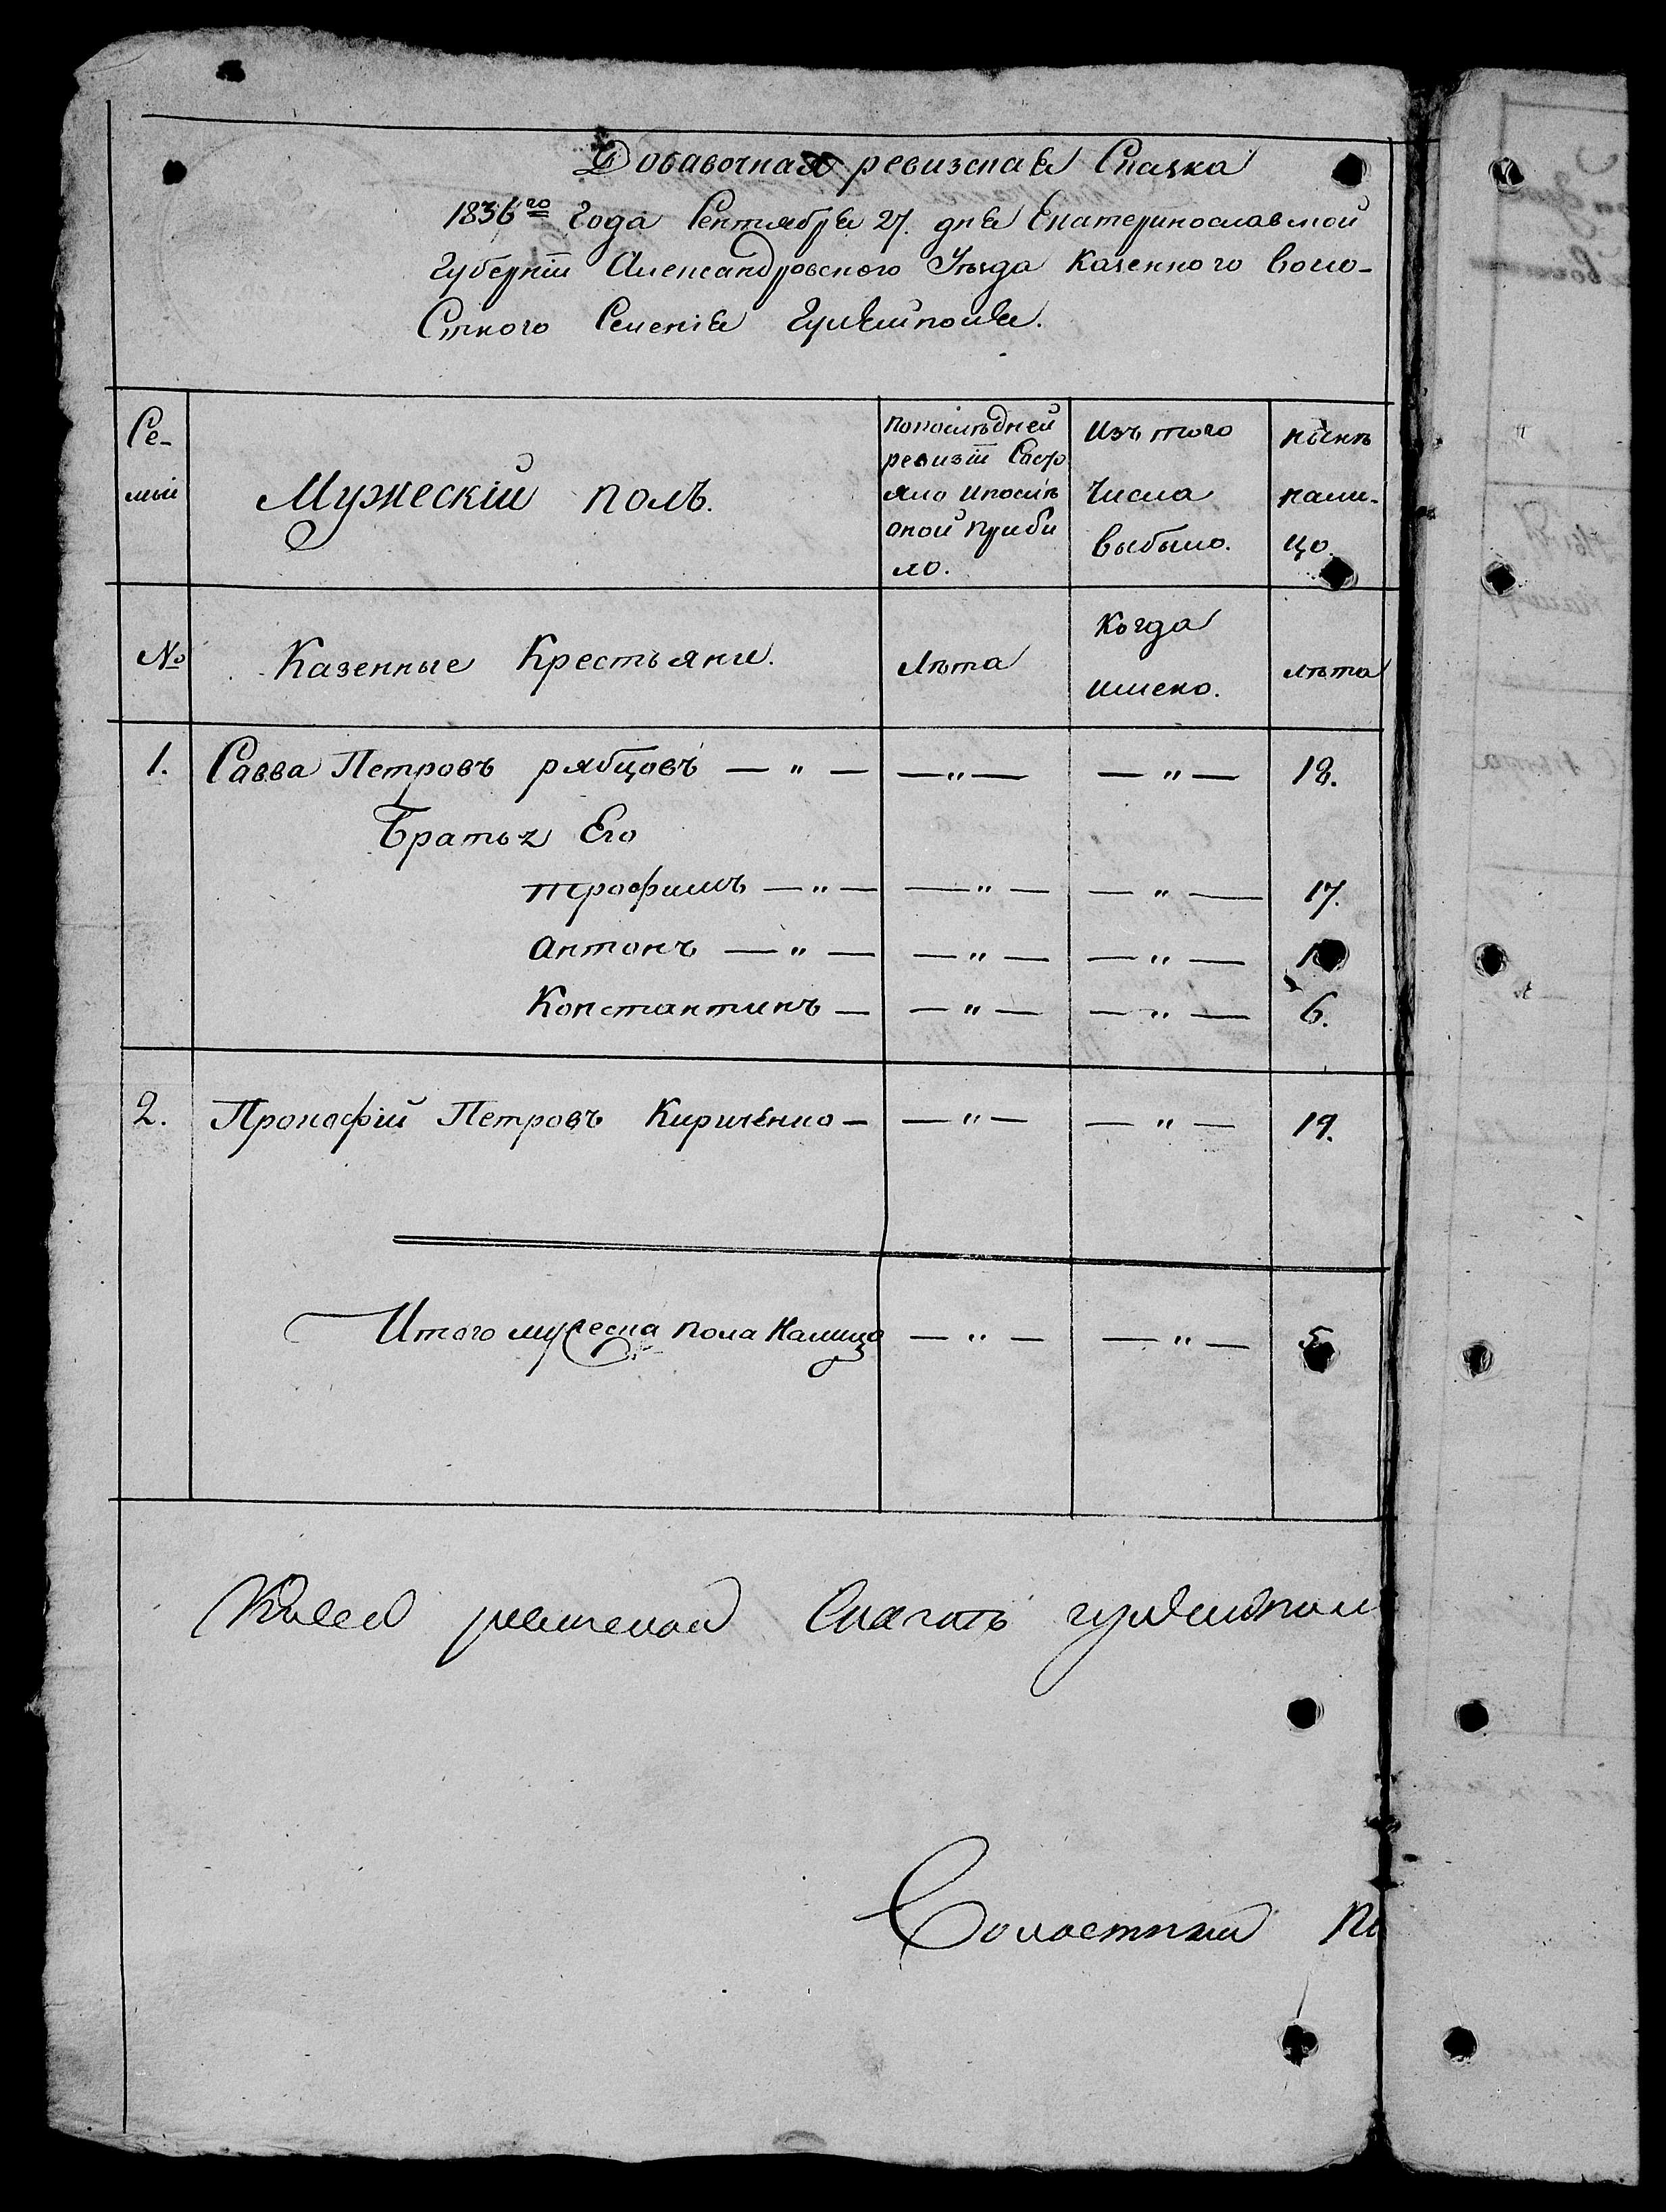 Добавочная ревизская Сказка
1836го Года Сентября 27. дня Екатеринославской
Губернiи Александровского Уѣзда Казенного Воло-
стного Селенiя Гуляйполя.
Се-
мьи
Мужескiй полъ.
попослѣдней
ревизiи Состо
яло ипослѣ
оной прибы
ло.
Изъ того
Числа
выбыло.
нынѣ
нали-
цо.
№
Казенные Крестьяне.
лѣта
Когда
имено.
лѣта
1. Савва Петровъ рябцовъ — " — — " — — " — 18.
Братья Его
трофимъ — " — — " — — " — 17.
антонъ — " — — " — — " —
Константинъ — — " — — " — 6.
2. Прокофiй Петровъ Кириченко — — " — — " — 19.
Итого мужеска пола Налицо — " — — " — 5
Ксей ревизской Сказкѣ гуляйпол
Волостный